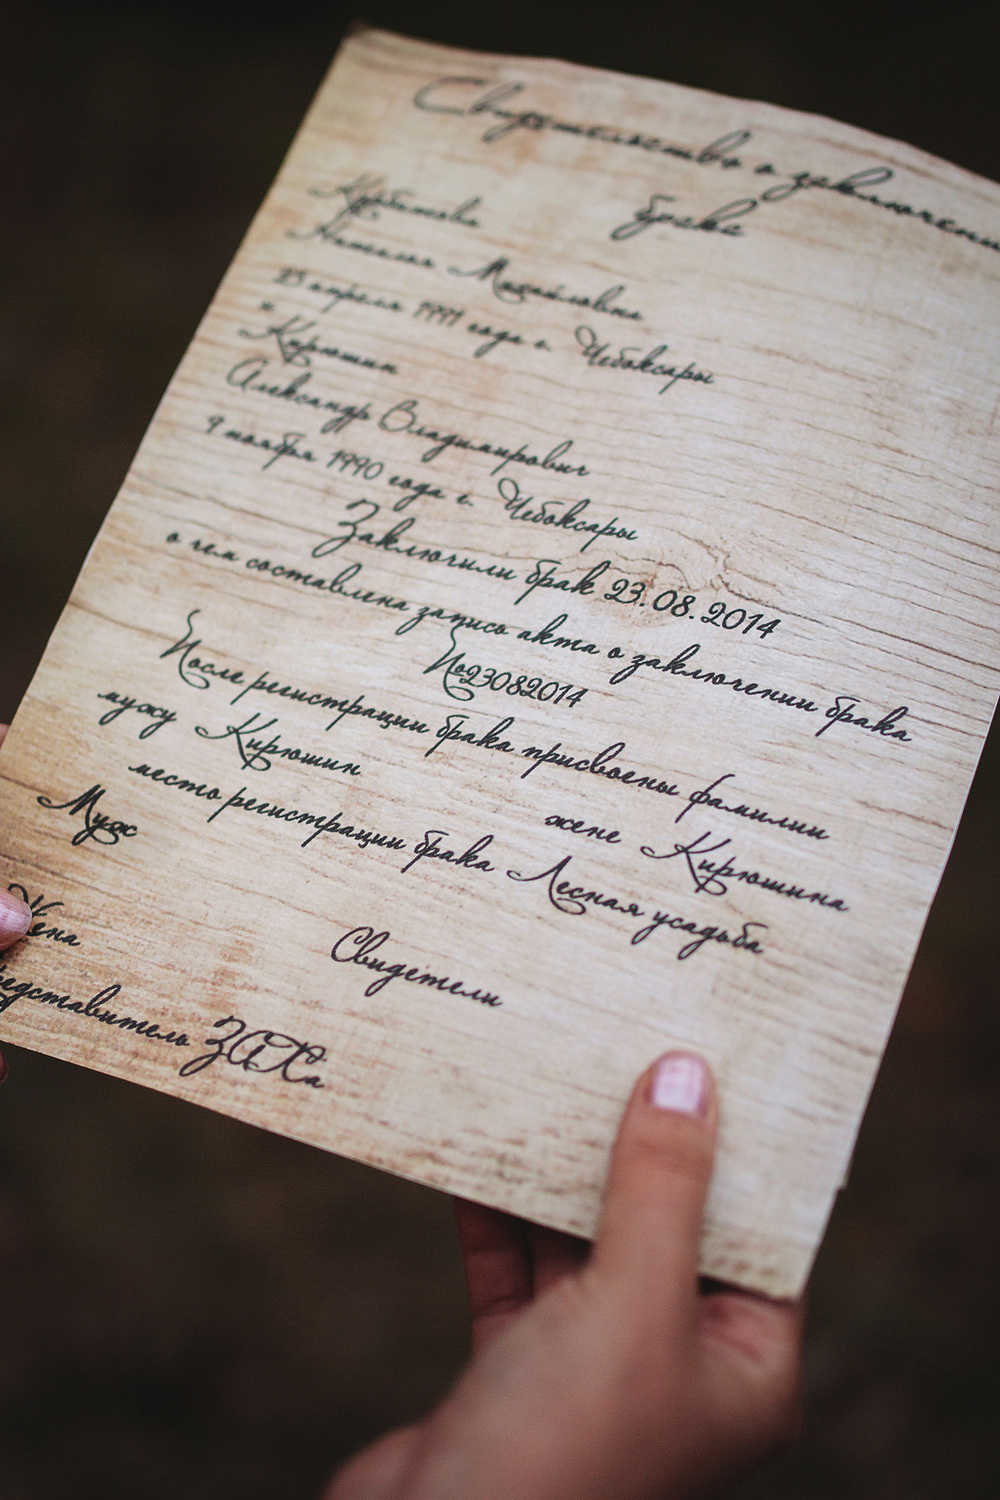 Свидетельство о заключении
браке
Курбатова
Наталья Михайловна
23 апреля 1991 года г. Чебоксары
и
Кирюшин
Александр Владимирович
9 ноября 1990 года г. Чебоксары
Заключили брак 23.08.2014
о чем составлена запись акта о заключении брака
№23082014
После регистрации брака присвоены фамилии
мужу Кирюшин жене Кирюшина
место регистрации брака Лесная усадьба
Муж
Жена Свидетели
редставитель ЗАГСа